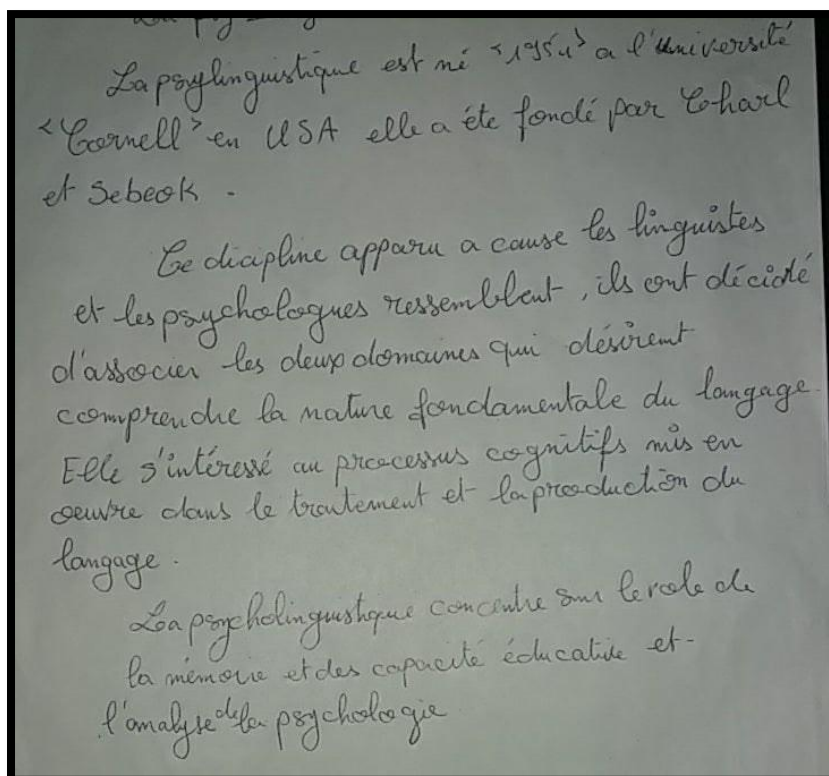 La psylinguistique est né <1954> a l'université
<Cornell> en USA elle a éte fondé par Charl
et Sebeok.
Ce dicipline apparu a cause les linguistes
et les psychologues ressemblent, ils ont décidé
d'associer les deux domaines qui désirent
comprendre la nature fondamentale du langage.
Elle s'intéressé au processus cognitifs mis en
oeuvre dans le traitement et la production du
langage.
La psycholinguistique concentre sur le role de
la mémoire et des capacité éducative et
l'analyse de la psychologie